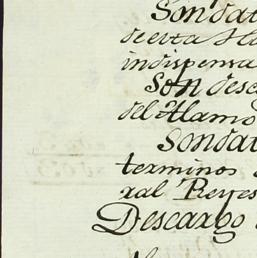 Son dat
de esta Ha
indispensa
Son desc
del Alamo
Son dat
terminos
ral Reyes
Descargo